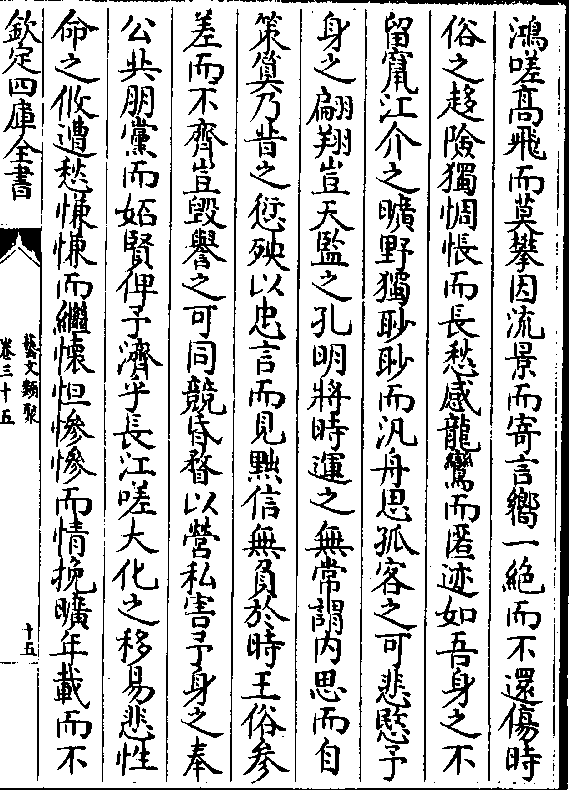 鴻嗟髙飛而莫攀因流景而寄言嚮一絶而不還傷時
俗之趍險獨惆悵而長愁感龍鸞而匿迹如吾身之不
留竄江介之曠野獨眇眇而汎舟思孤客之可悲愍予
身之翩翔豈天監之孔明將時運之無常謂内思而自
策算乃昔之愆殃以忠言而見黜信無負於時王俗參
差而不齊豈毀譽之可同競昏瞀以營私害予身之奉
公共朋黨而妬賢俾予濟乎長江嗟大化之移易悲性
命之攸遭愁慊慊而繼懐怛慘慘而情挽曠年載而不
欽定四庫全書
藝文類聚
卷三十五
十五